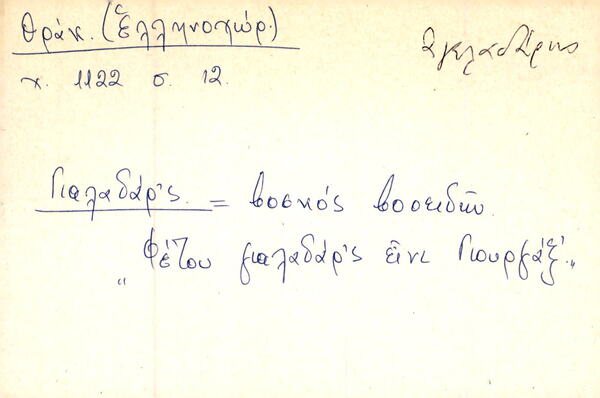 Θράκ. (Ἑλληνοχώρ.)
ἀγελαδάρης
χ. 1122 σ. 12.
Γιαλαδάρ'ς = βοσκός βοοειδῶν.
„Φέτου γιαλαδάρ'ς εἶνι Γιουργάξ'„